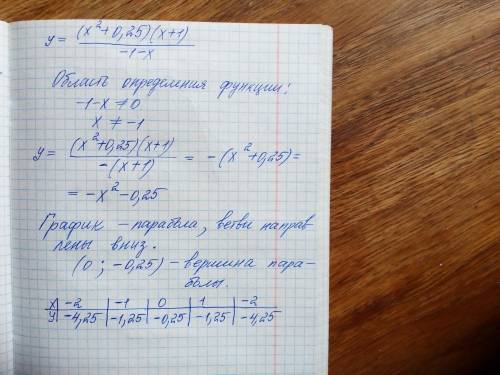 y = (x²+0,25)(x+1) / -1-x
Область определения функции:
-1-x ≠ 0
x ≠ -1
y = (x²+0,25)(x+1) / -(x+1) = -(x²+0,25) =
= -x²-0,25
График - парабола, ветви направ
лены вниз.
(0 ; -0,25) - вершина пара-
болы.
x | -2 | -1 | 0 | 1 | -2
y | -4,25 | -1,25 | -0,25 | -1,25 | -4,25